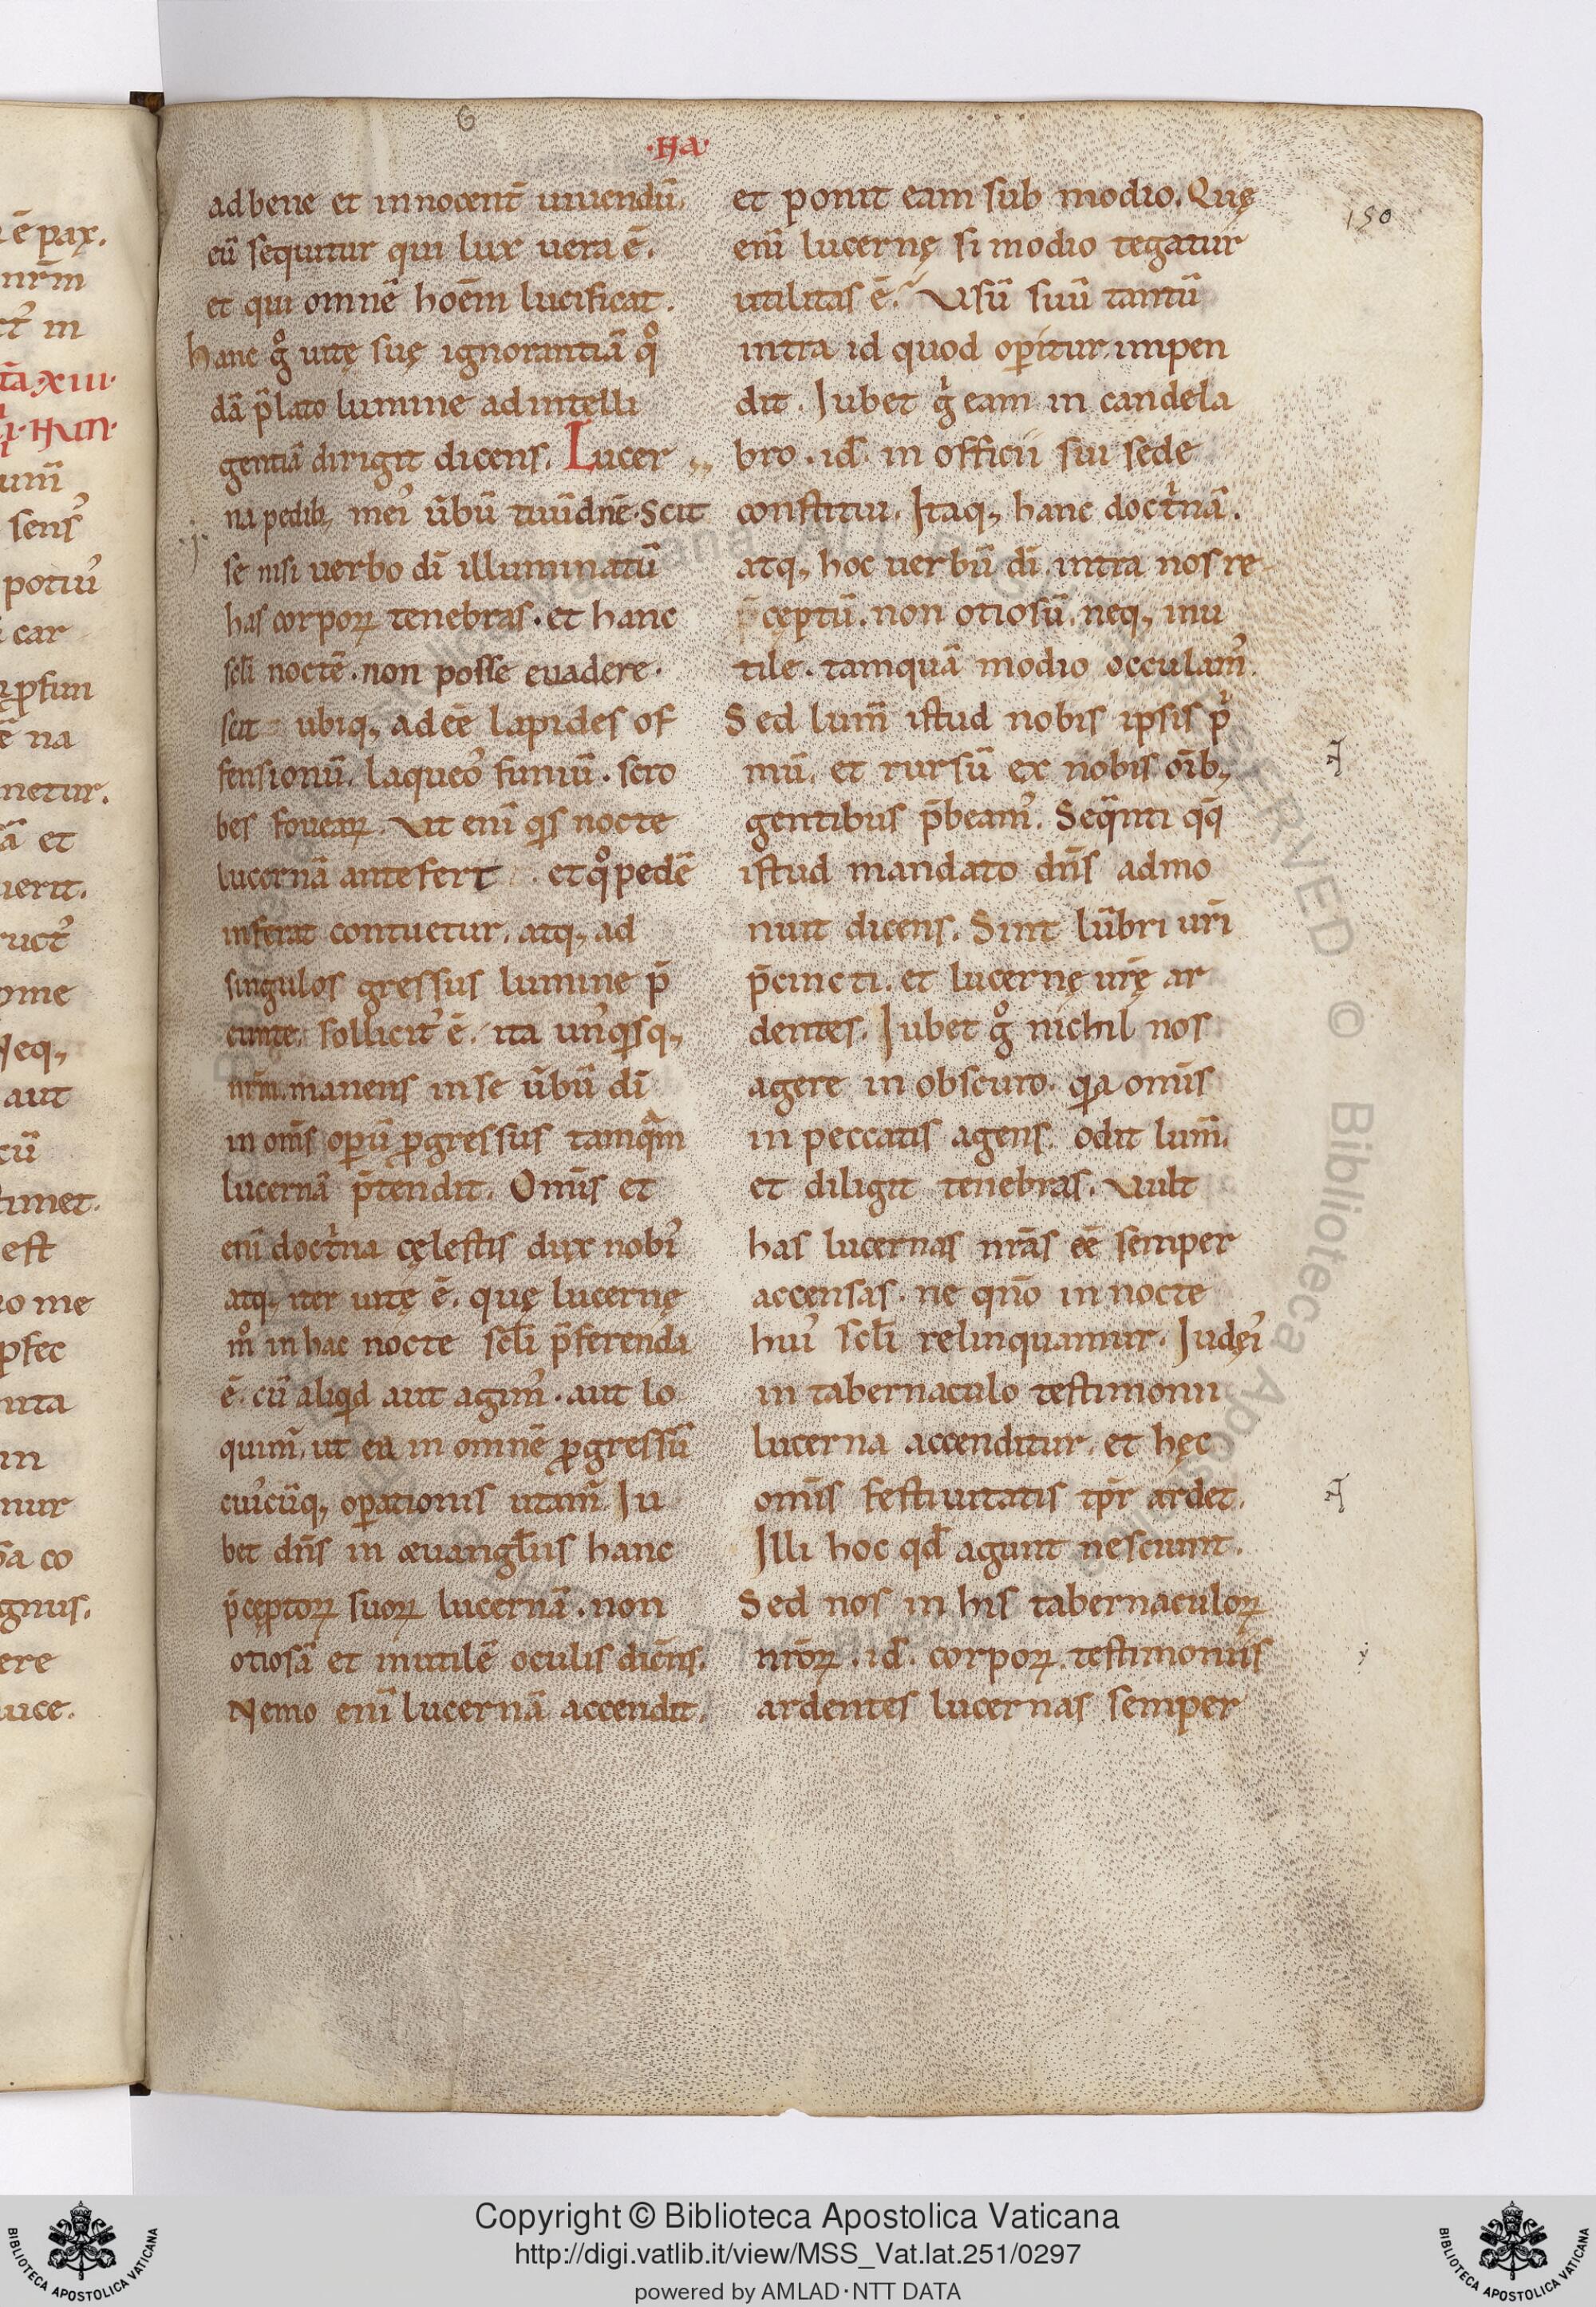 6
·HA·
150
ad bene et innocent̄ uiuendū.
cū sequitur qui lux uera ē.
et qui omnē hoēm lucificat.
hanc gͦ uitę suę ignorantiā qͦ
dā p̄lato lumine ad intelli
gentiā dirigit dicens. Lucer
na pedib; meiꝰ ūbū tuū dn̄e. Scit
se nisi uerbo dī illuminatū
has corporꝝ tenebras. et hanc
sclī noctē. non posse euadere.
scit ubiq; adeē lapides of
fensionū. laqueoꝰ funiū. scro
bes foueaꝝ. Vt enī qis nocte
lucernā antefert et qͦ pedē
inferat contuetur. atq; ad
singulos gressus lumine p̄
eunte. sollicitꝰ ē. ita unꝰqisq;
nr̄m. manens in se ūbū dī
in om̄s operū ꝓgressus tamqᵃm
lucernā p̄tendit. Omīs et
enī doctͥna cęlestis dux nobiꝰ
atq; iter uitę ē. quę lucernę
mͦ in hac nocte sclī p̄ferenda
ē. cū aliqid aut agimꝰ. aut lo
quimꝰ. ut ea in omnē ꝓgressū
cuiꝰcūq; oꝑationis utamꝰ. Iu
bet dn̄s in æuangl̄iis hanc
p̄ceptorꝝ suorꝝ lucernā. non
otiosā et inutilē oculis dicēns.
Nemo enī lucernā accendit.
et ponit eam sub modio. Quę
enī lucernę si modio tegatur
utilitas ē. Vsū suū tantū
intra id quod oꝑitur. impen
dit. Iubet gͥ eam in candela
bro. id̄. in officii sui sede
constitui. Itaq; hanc doctͥnā.
atq; hoc uerbū dī intra nos re-
cęptū. non otiosū. neq; inu
tile. tamquā modio occulamꝰ.
Sed lum̄ istud nobis ipsis pͥ
mū. et rursū ex nobis oīb;
gentibus p̄beamꝰ. Seqᵃnti qq̄
istud mandato dn̄s admo
nuit dicens. Sint lūbri urī
p̄cincti. et lucernę urę̄ ar
dentes. Iubet gͦ nichil nos
agere in obscuro. qia omīs
in peccatis agens. odit lum̄.
et diligit tenebras. Vult
has lucernas nrās eē semper
accensas. ne qn̄o in nocte
huiꝰ sclī relinquamur. Iudęiꝰ
in tabernaculo testimonii
lucerna accenditur. et hęc
omīs festiuitatis tp̄r ardet.
Illi hoc qd̄ agunt nesciunt.
Sed nos in his tabernaculorꝝ
nrōrꝝ. id̄. corporꝝ. testimoniis
ardentes lucernas semper
Copyright © Biblioteca Apostolica Vaticana
http://digi.vatlib.it/view/MSS_Vat.lat.251/0297
powered by AMLAD·NTT DATA
BIBLIOTECA APOSTOLICA VATICANA
BIBLIOTECA APOSTOLICA VATICANA